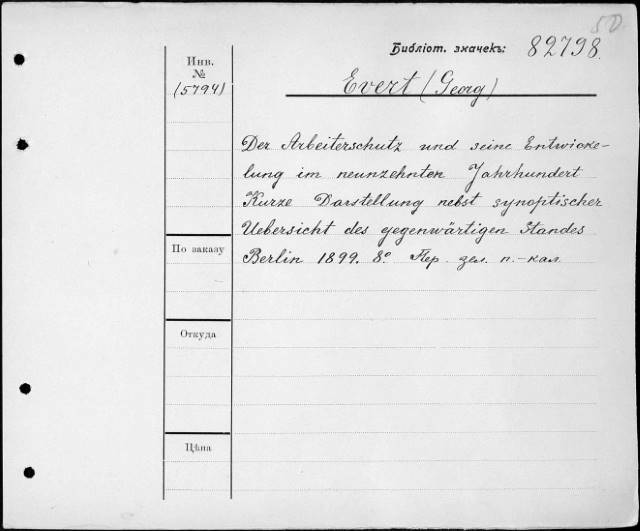 50.
Библіот. значекъ: 82798.
Инв.
№
(5794)
Evert (Georg)
Der Arbeiterschutz und seine Entwicke-
lung im neunzehnten Jahrhundert
Kurze Darstellung nebst synoptischer
Uebersicht des gegenwärtigen Standes
Berlin 1899. 8º Пер. зел. п.-кал.
По заказу
Откуда
Цѣна